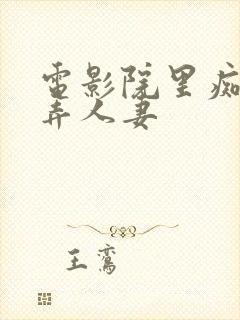 電影院里痴
弄人妻
王鸞